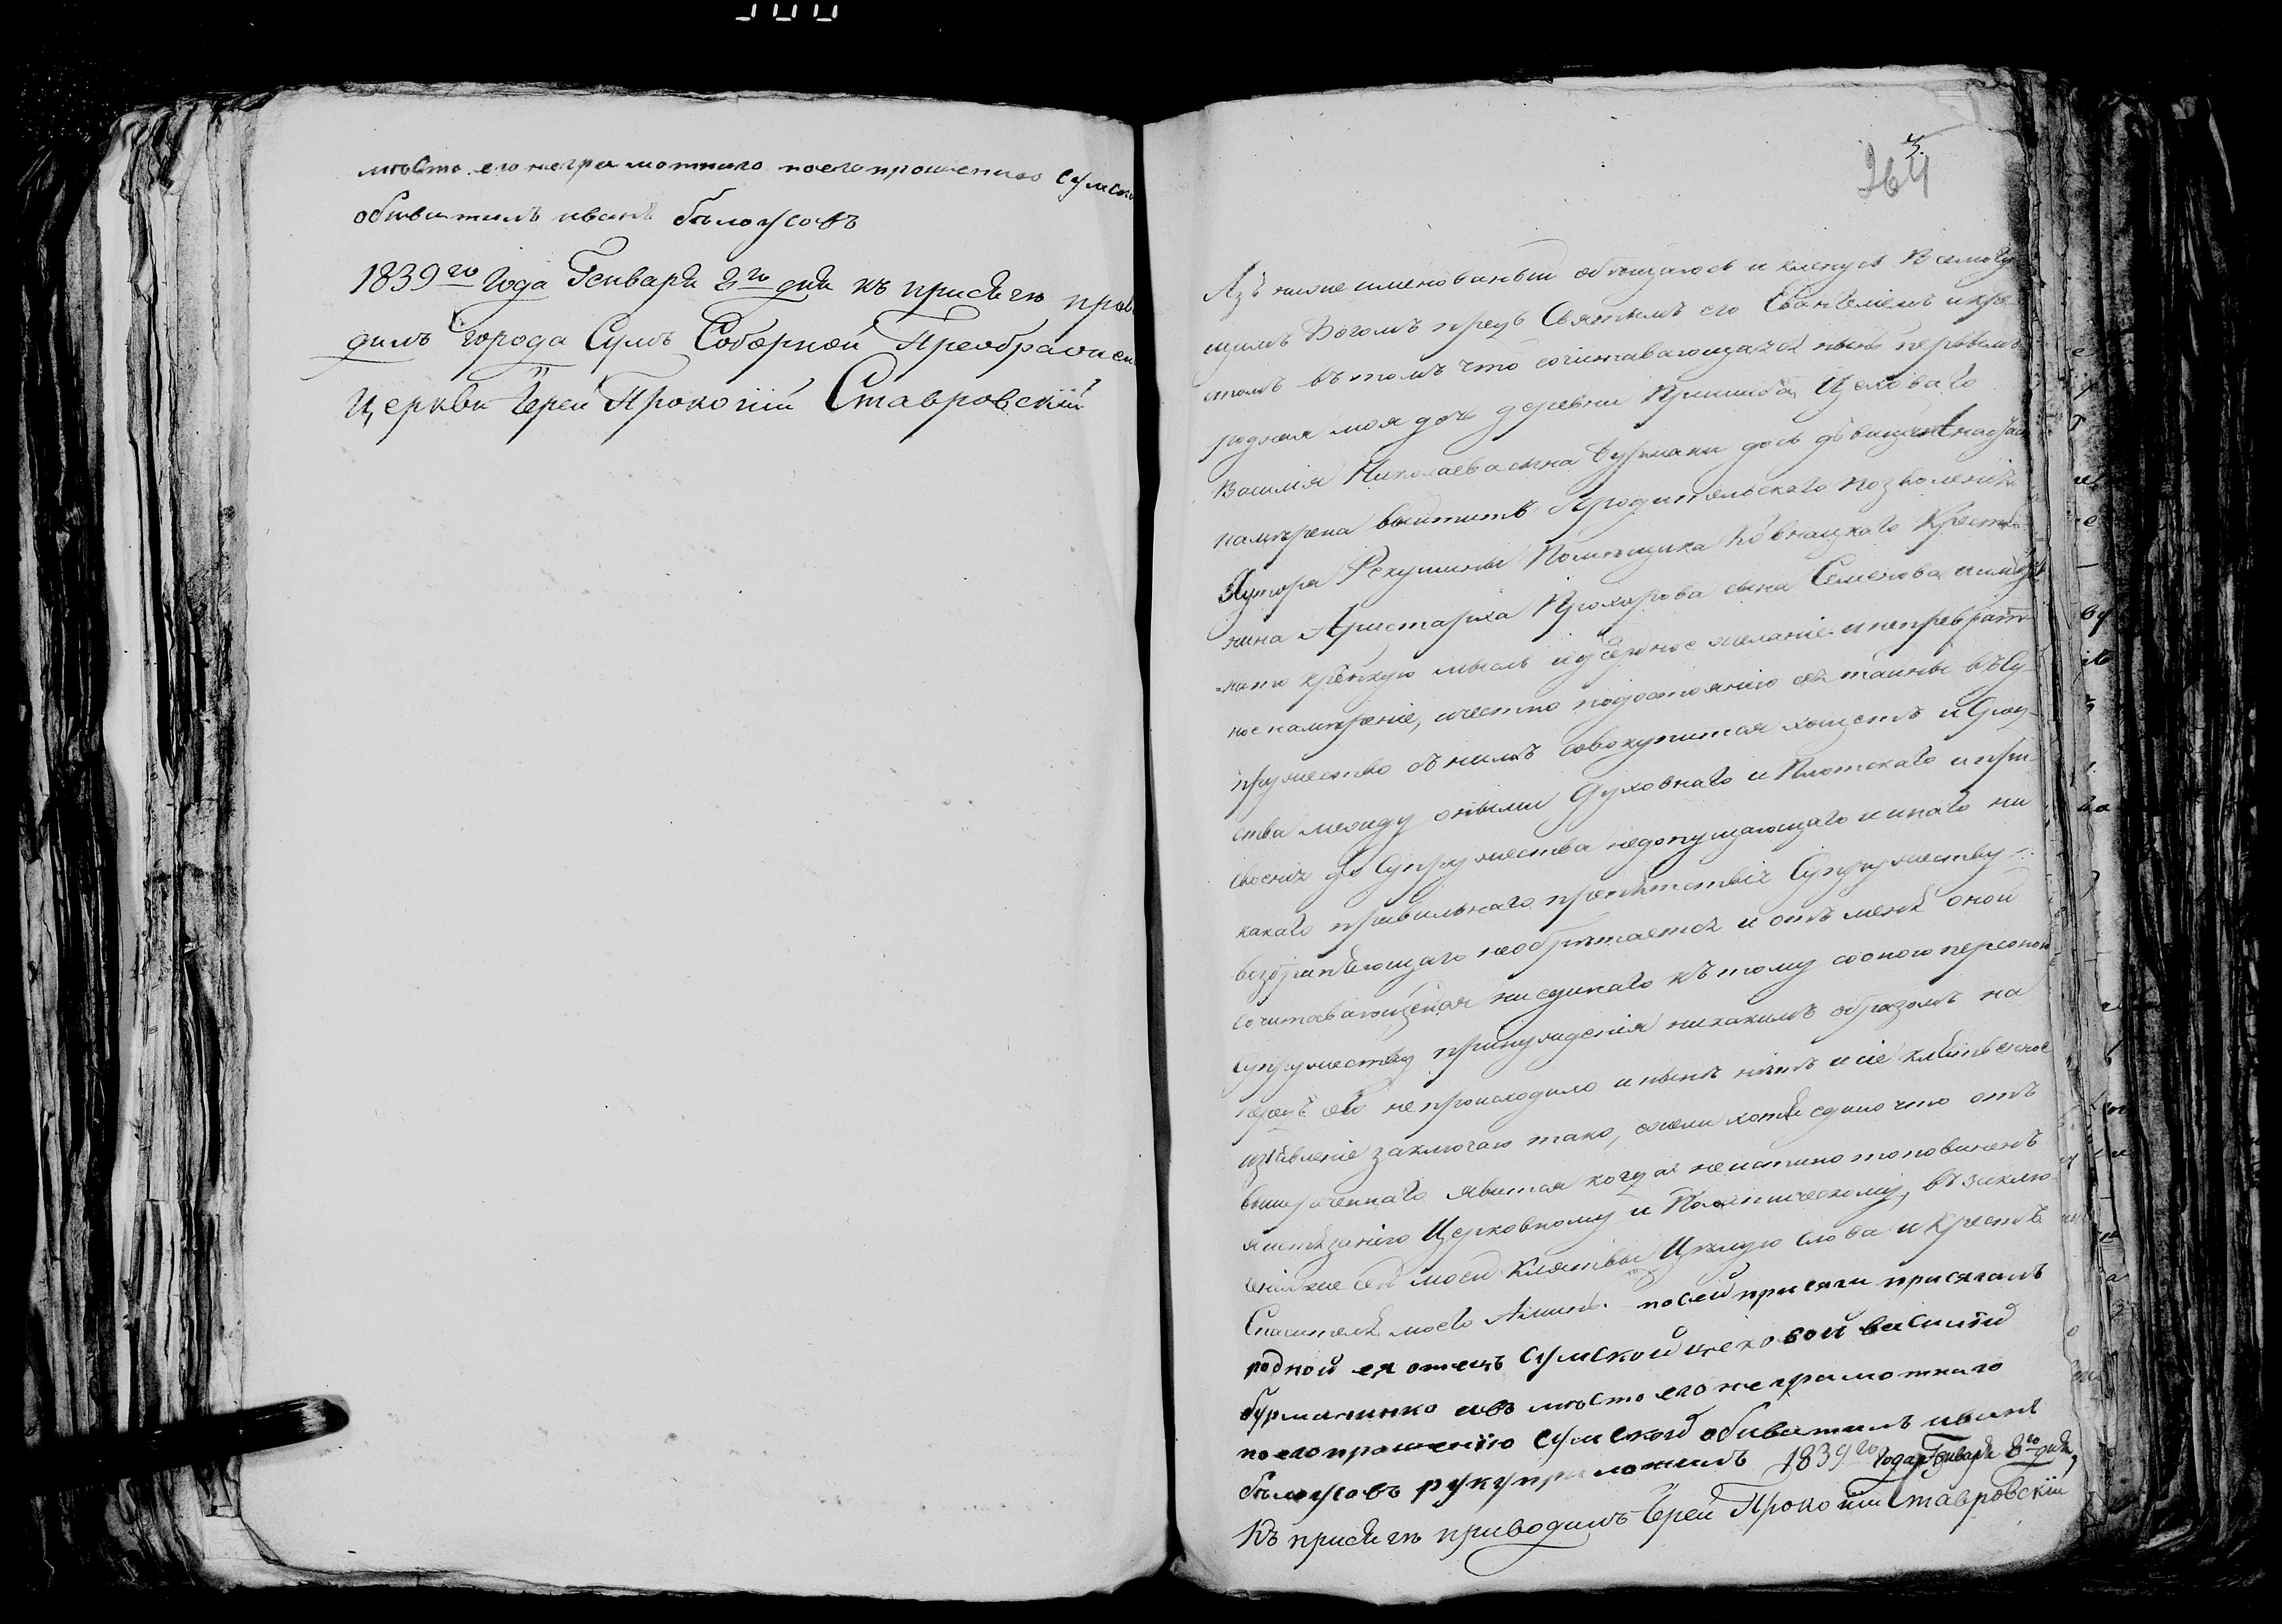 мѣсто его неграмотнаго поего прошению Сумско
обыватиль иванъ бѣлоусовъ
1839го Года Генваря 2го дня къ присягѣ приво
дилъ города Сумъ Соборной Преображен
Церкви Іерей Прокопій Ставровскій
3.
264
Азъ нижеименованный обѣщаюсь и кленусь Всемогу
щимъ Богомъ предъ Святымъ его Евангеліемъ и кре
стомъ въ томъ что сочитавающаяся нынѣ первымъ
родная моя дочь деревни Цеховаго
Василія Николаева сына Бурмаки дочь дѣвица
намѣрена выйтить Городительскаго позволенія
Хутора Рекушины Помѣщика Крестья
нина Аристарха Прохорова сына Семенова
крѣпкую мысль и усердное желаніе и непреврат
ное намѣреніе, и честно подостоянію сея тайны въ Су
пружество съ нимъ совокупитися хощетъ и Срод
ства между оными Духовнаго и Плотскаго и при
своенія до Супружества недопущающаго и инаго ни
какаго правильнаго препятствія Супружеству
возбраняющаго необрѣтается и отъ меня оной
сочитавающейся ниединаго къ тому сооною персоною
Супружеству принужденія никакимъ образомъ на
предъ сего непроисходило и нынѣ нѣтъ и сіе клятвенное
изъявленіе заключаю тако, ежели хотя едино что отъ
вышереченнаго явится когда неистинно то повиненъ
истязанію Церковному и Политическому, въ заклю
ченіе сея моей Клятвы Цѣлую Слова и Крестъ
Спасителя моего Аминь. посей присяги присягалъ
родной ея отецъ Сумской цеховой василий
бурмаченко а въ мѣсто его неграмотнаго
поего прошенію Сумской обыватиль иванъ
бѣлоусовъ руку приложилъ 1839го Года Генваря 8го дня,
Къ присягѣ приводилъ Іерей Прокопій Ставровскій